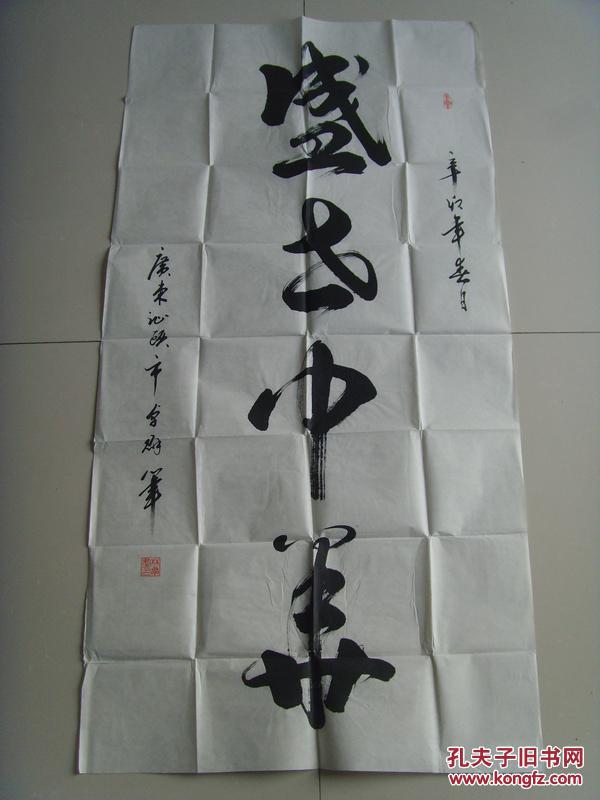 辛卯年春月
盛世中华
廣東 市 笔
孔夫子旧书网
www.kongfz.com